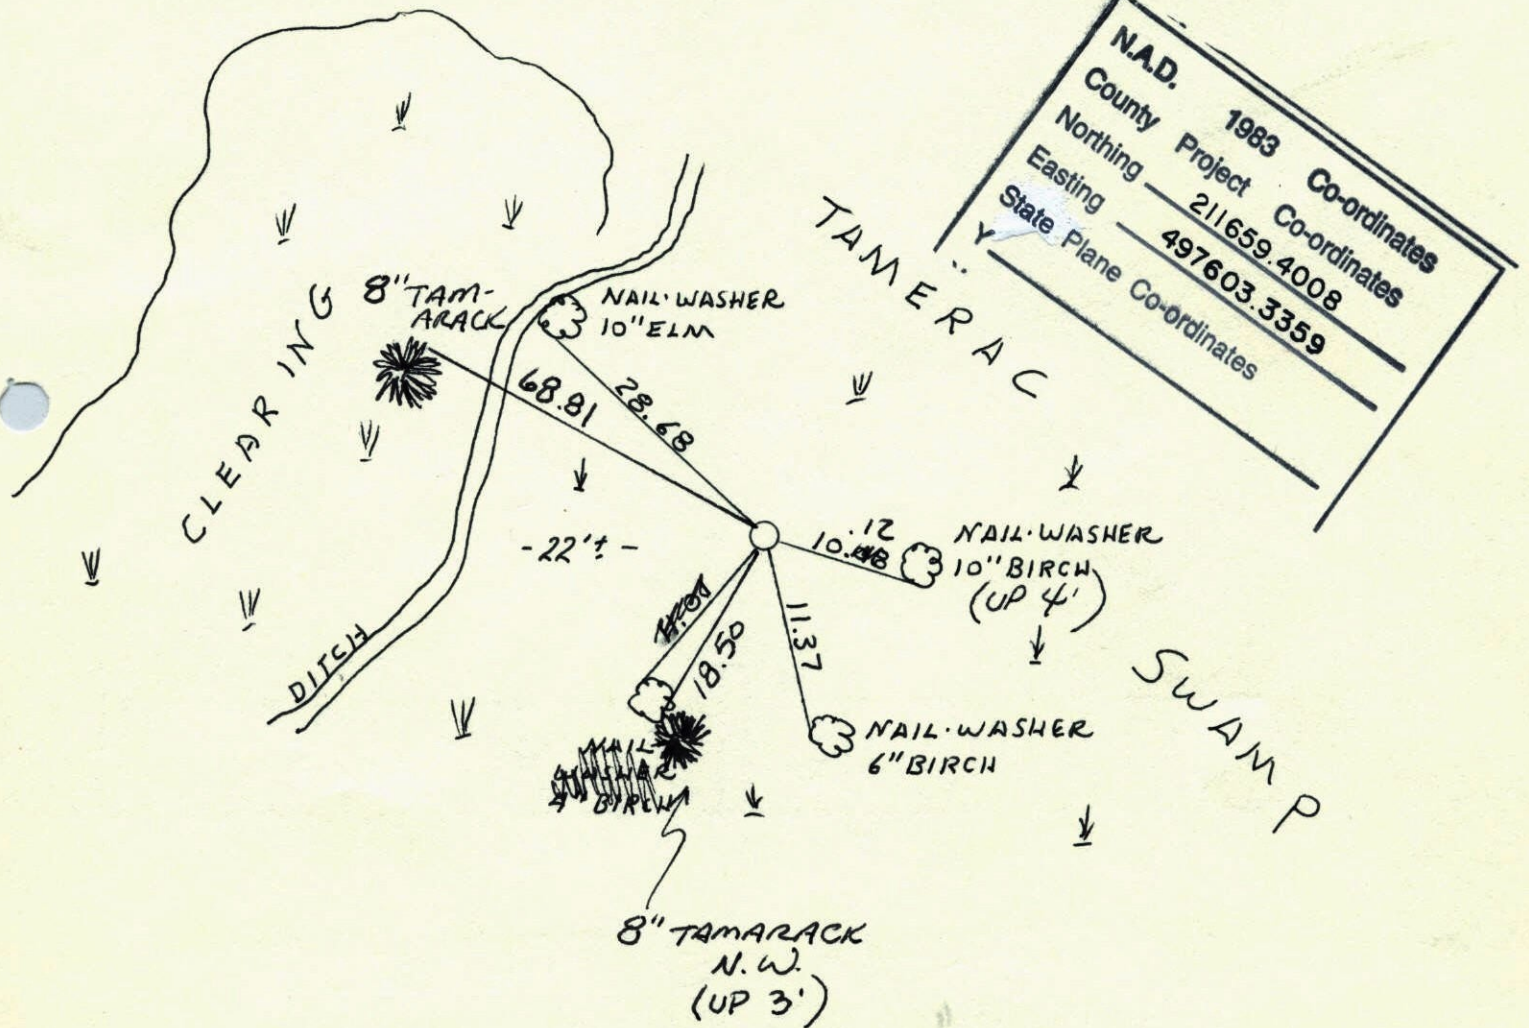 N.A.D. 1983 Co-ordinates
County Project Co-ordinates
Northing 211659.4008
Easting 497603.3359
State Plane Co-ordinates
Y
TAMERAC
SWAMP
CLEARING
8" TAM-
ARACK
NAIL·WASHER
10" ELM
68.81
28.68
-22'± -
10.12
NAIL·WASHER
10" BIRCH
(UP 4')
11.37
18.50
DITCH
NAIL·WASHER
6" BIRCH
NAIL
WASHER
4" BIRCH
8" TAMARACK
N.W.
(UP 3')